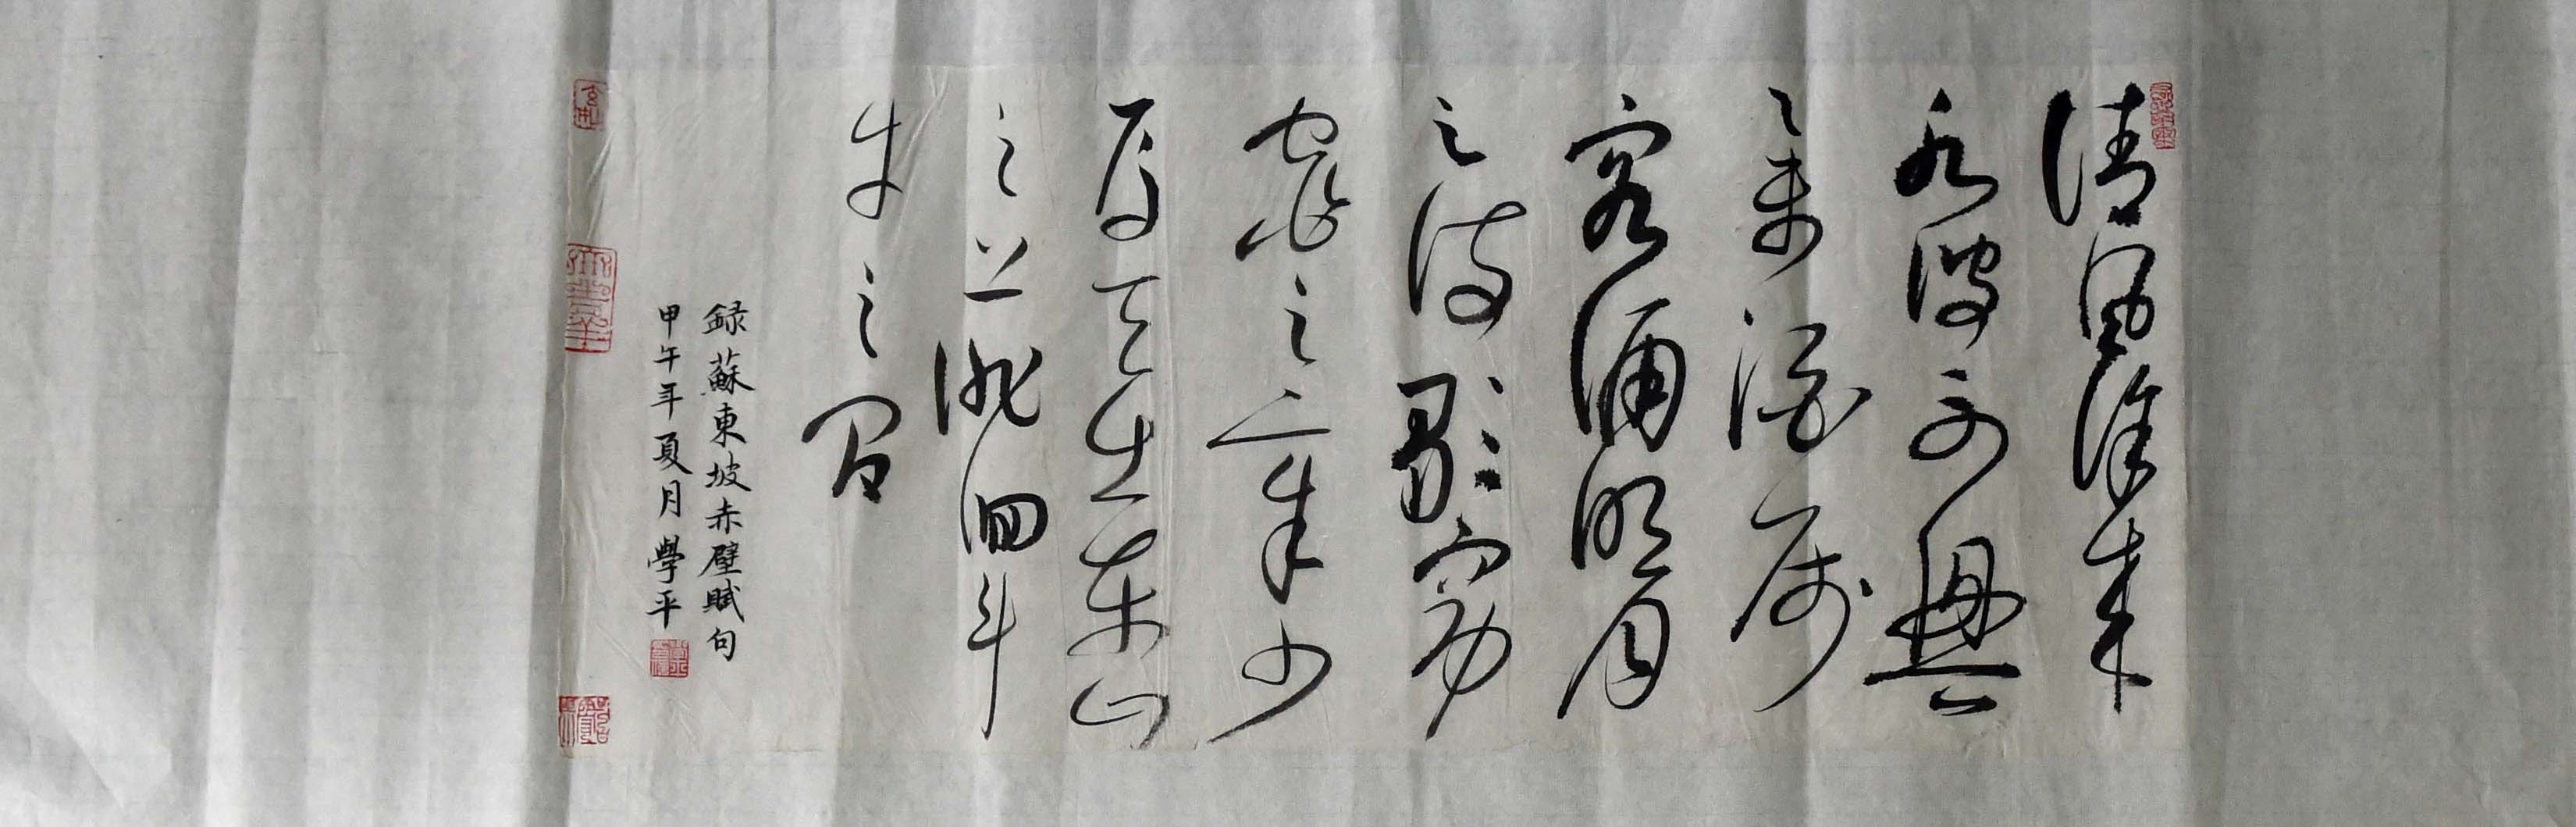 清風徐來
水波不興
舉酒属
客誦明月
之詩歌窈
窕之章少
焉月出東山
之上徘徊斗
牛之間
録蘇東坡赤壁賦句
甲午年夏月學平